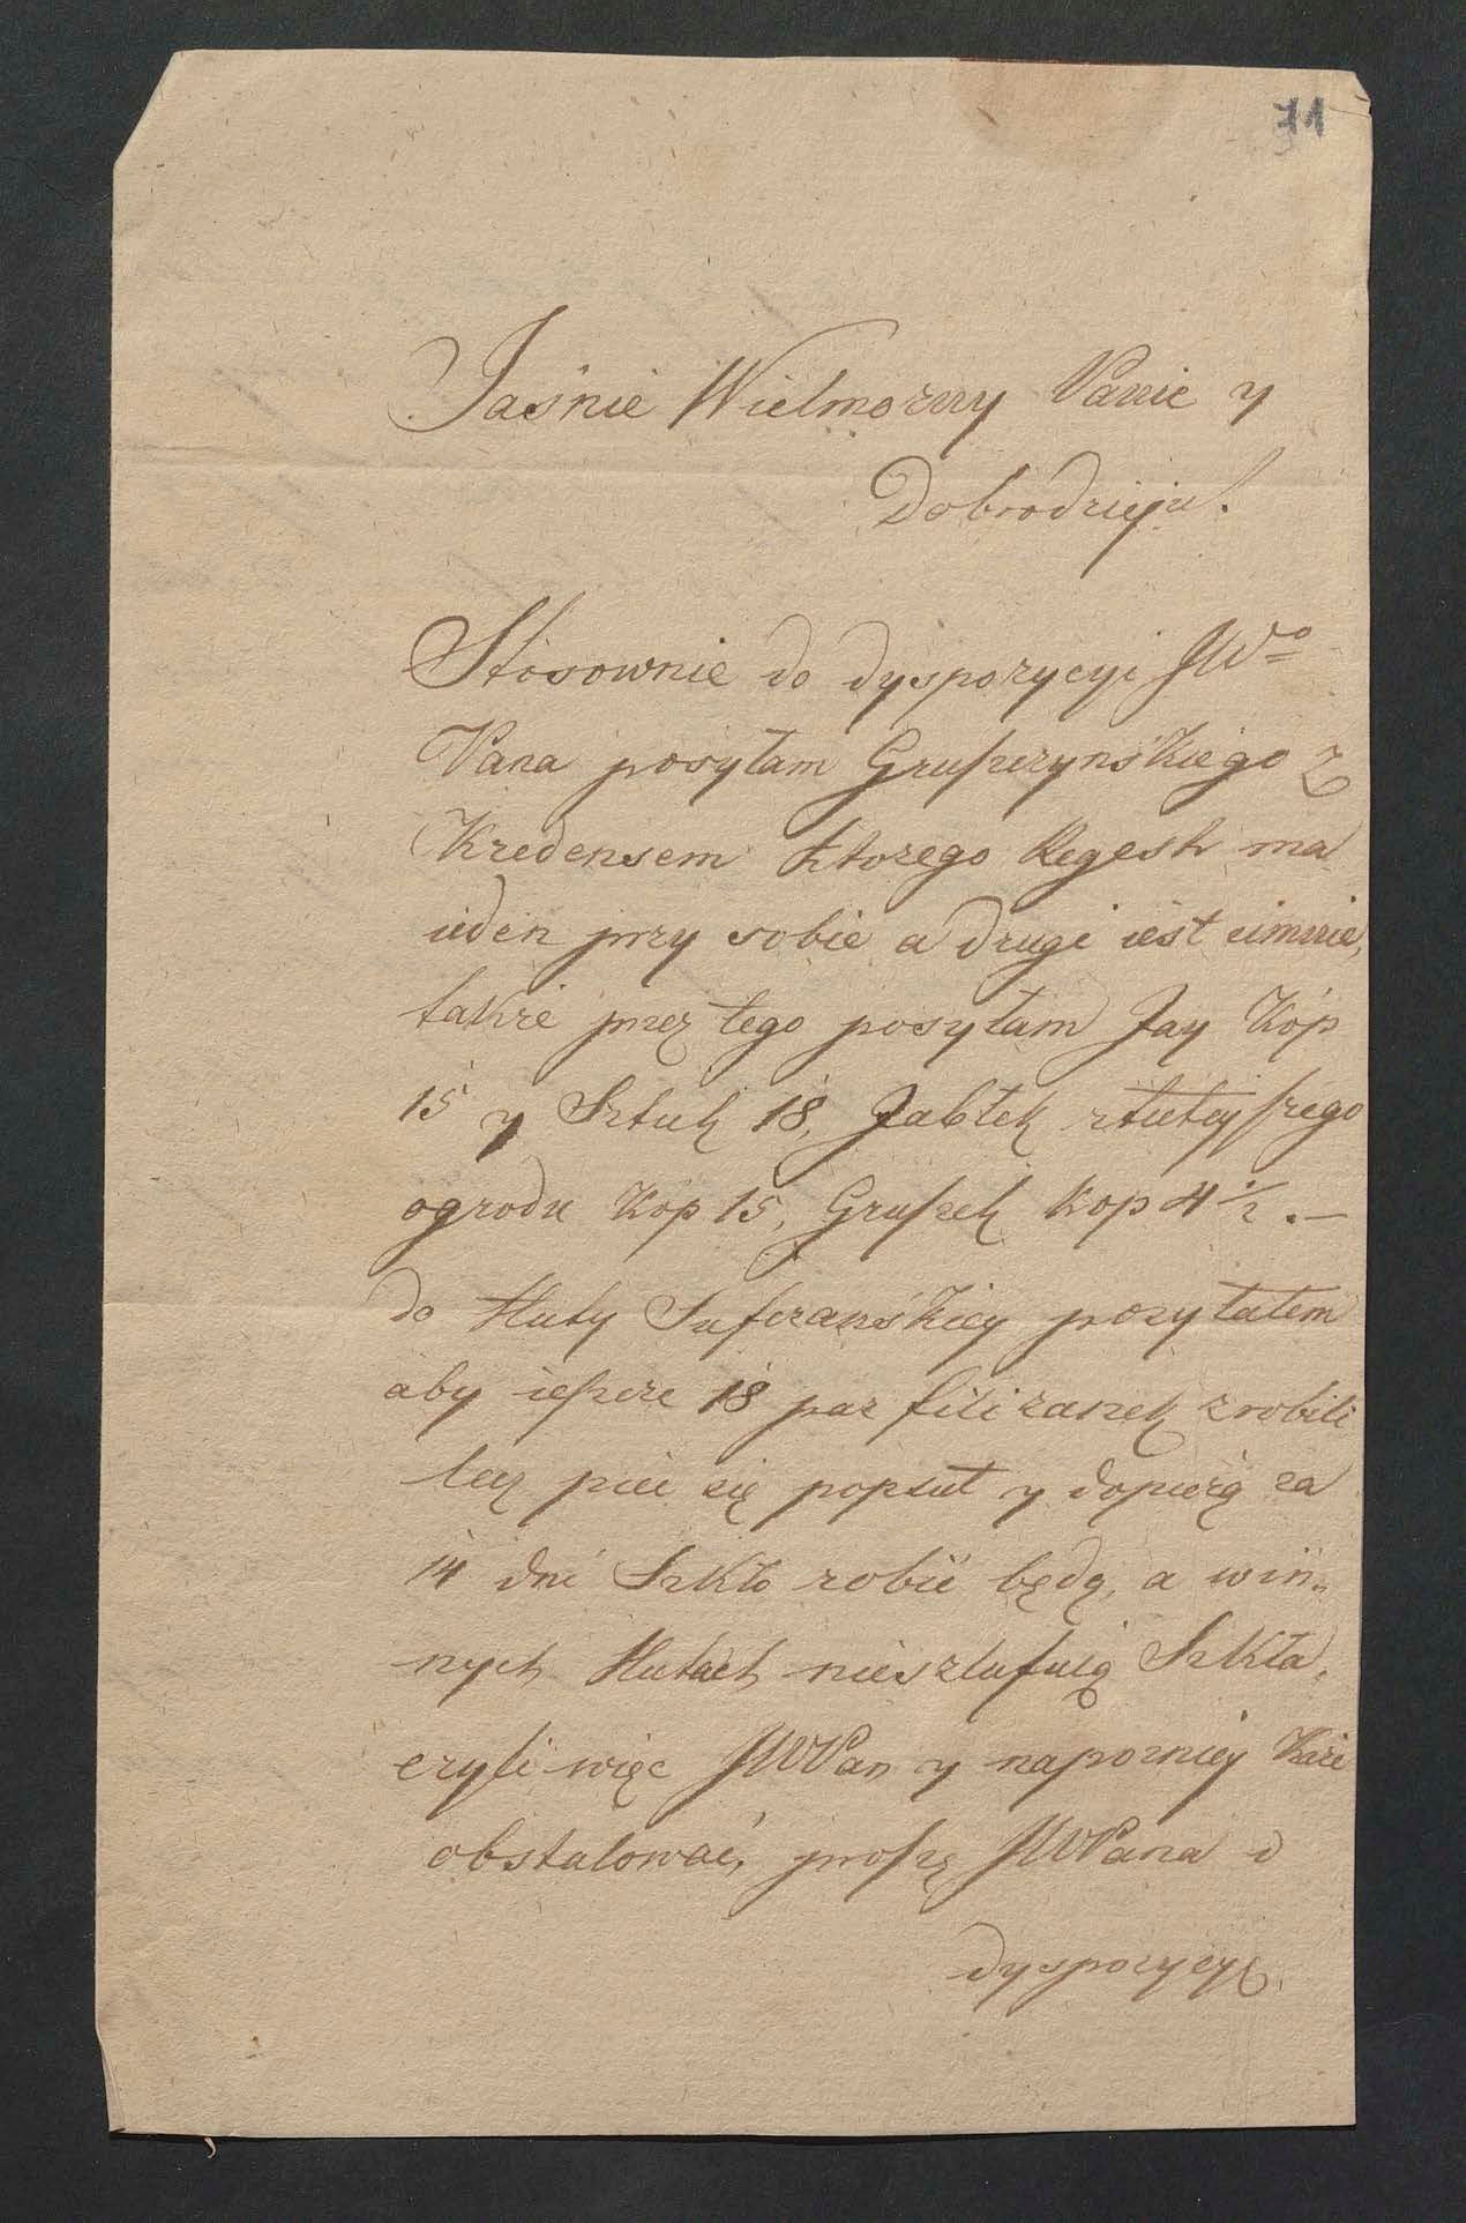 71
Jaśnie Wielmozny Panie y
Dobrodzieju!
Stosownie do dyspozycyi JWo
Pana posyłam Gruszczynskiego z
Kredensem ktorego Regestr ma
ieden przy sobie a drugi iest umnie,
takze przez tego posyłam Jay Kóp
15 y Sztuk 18, Jabłek ztuteyszego
ogrodu Kop 15, Gruszek kop 4½.—
do Huty posyłałem
aby ieszcze 18 par filizanek zrobili
lecz piec się popsuł y dopierą za
14 dni Szkło robić będą, a win„
nych Hutach nieszlufuią Szkła,
czyli więc JWPan y napozniey Każe
obstalować, proszę JWPana o
dyspozycyę.